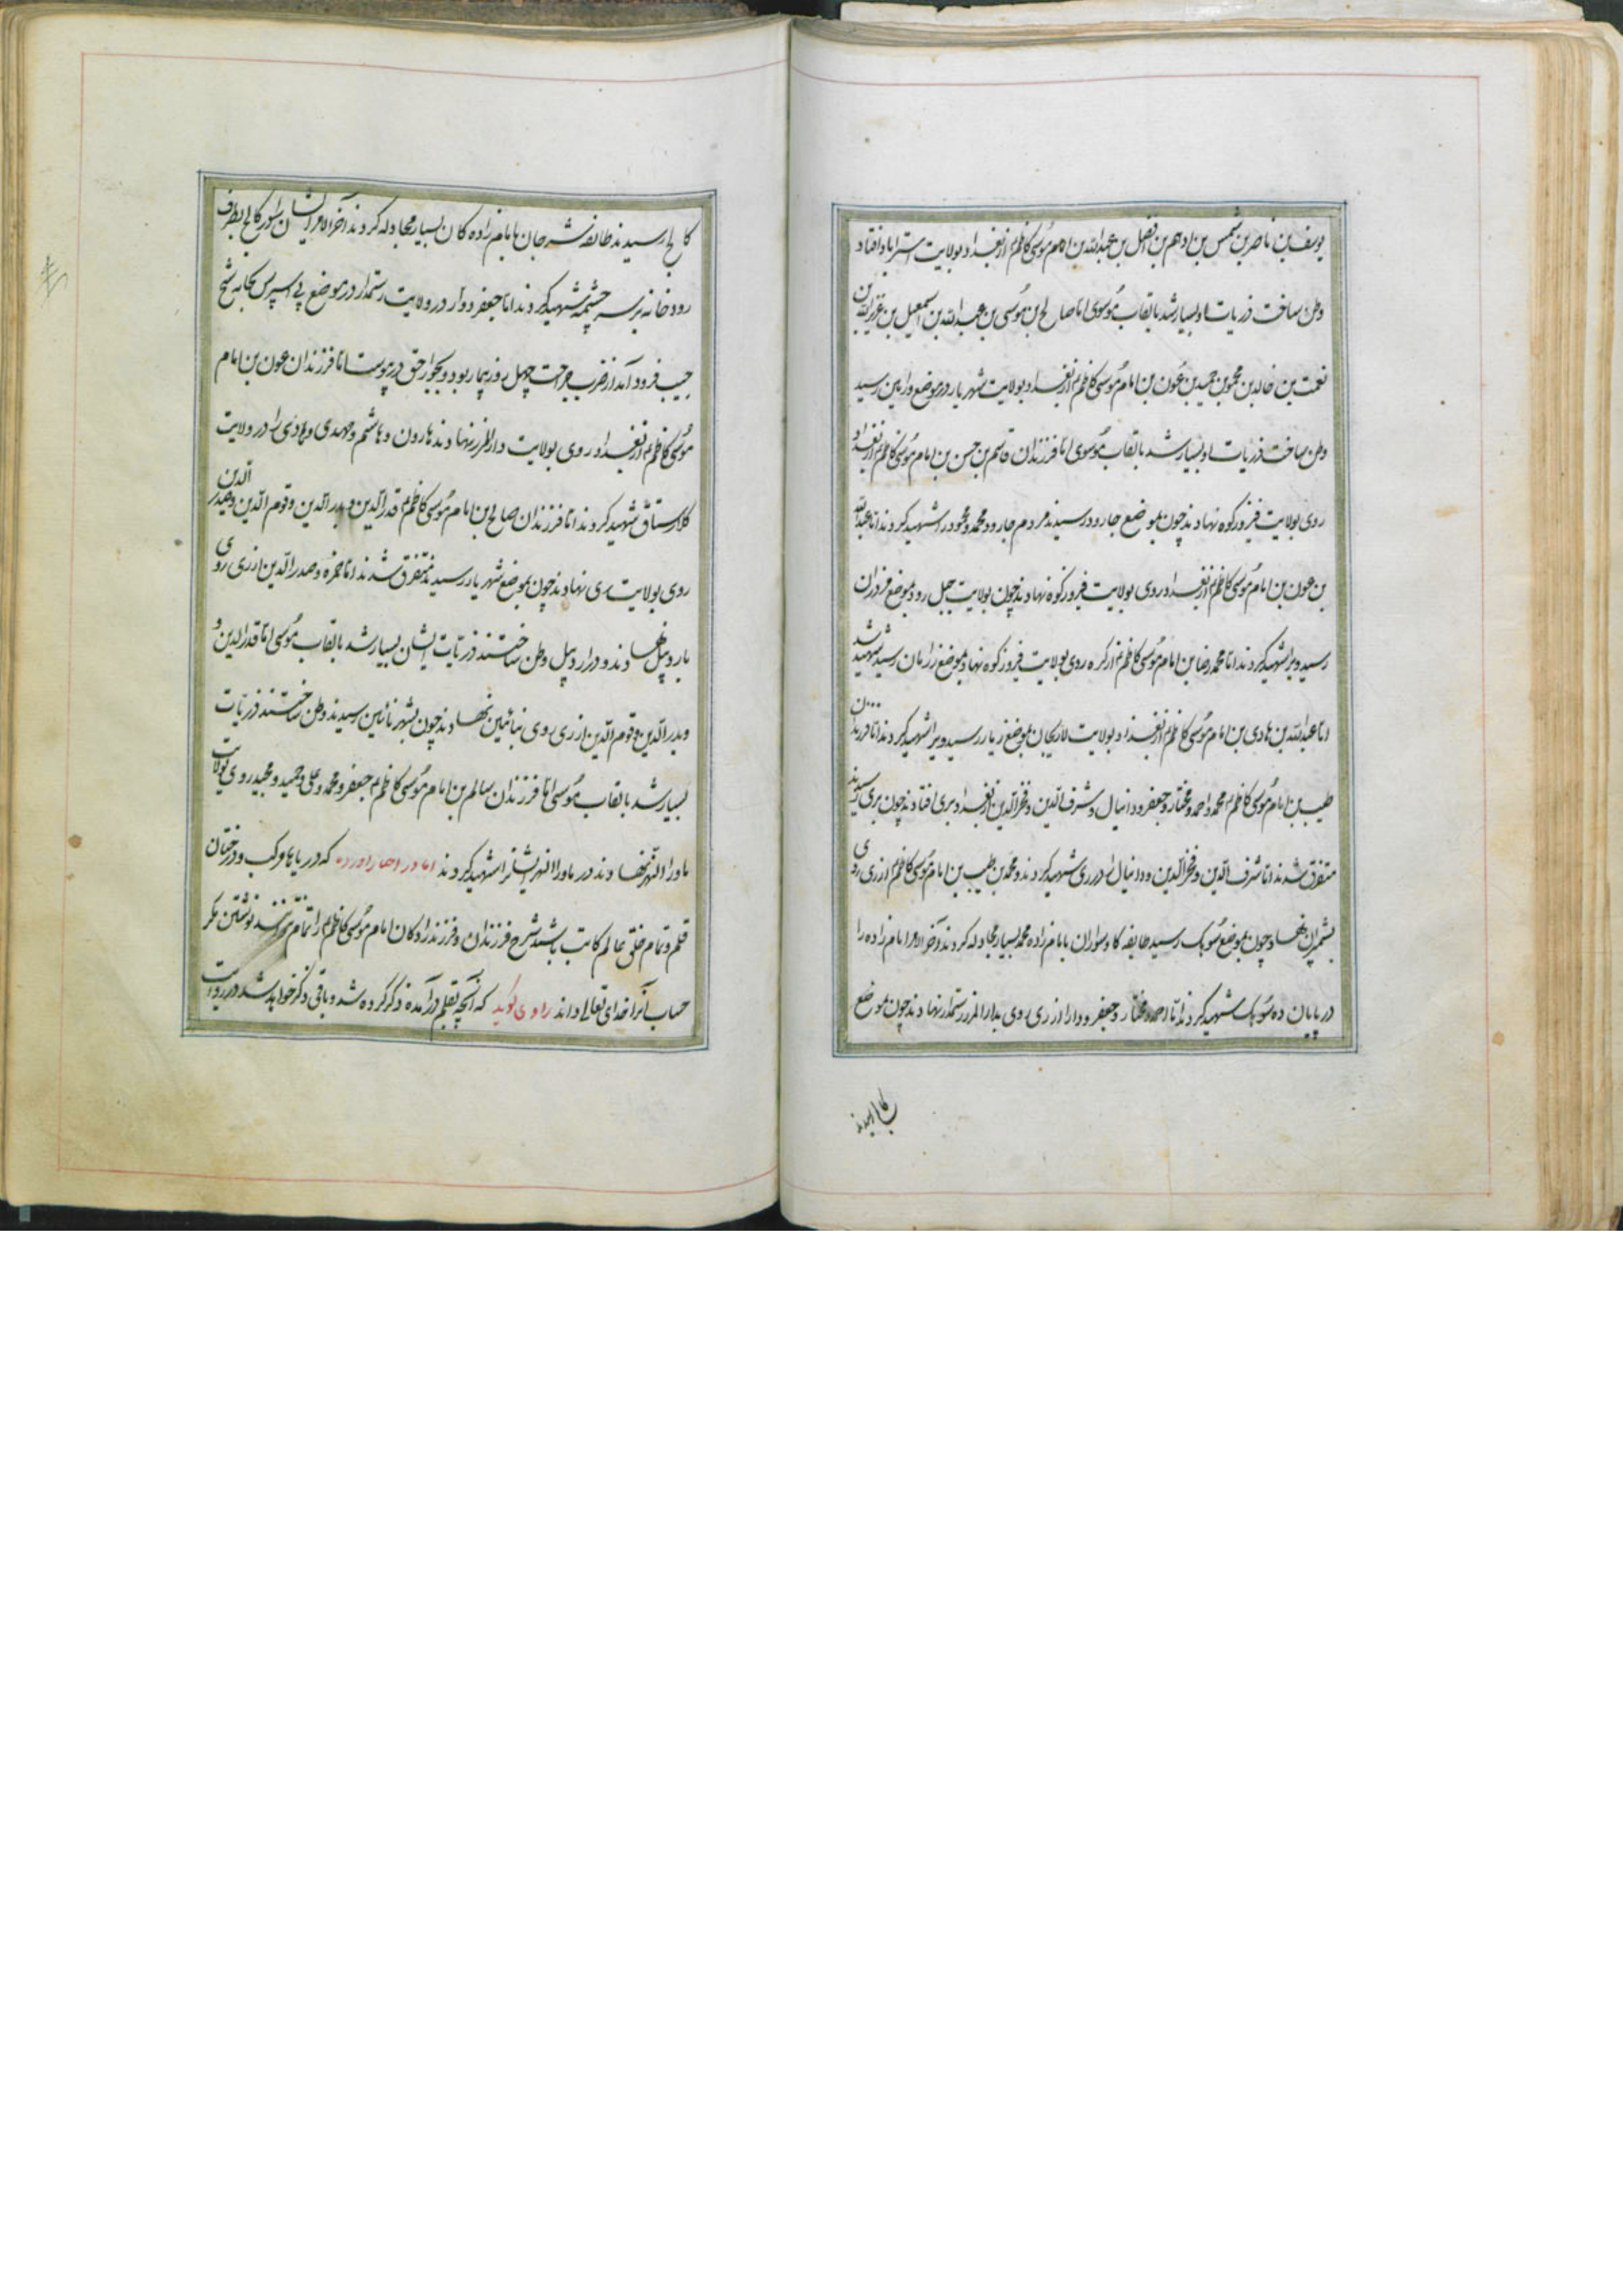 یوسف بن ناصر بن شمس بن ادهم بن افضل بن عبدالله بن امام موسی کاظم ع از بغداد بولایت استراباد افتاد
وطن ساخت ذریات او بسیار شد بالقاب موسوی اما صالح بن موسی بن عبدالله بن اسمعیل بن عزیزالله بن
نعمت بن خالد بن محمود بن حمید بن عون بن امام موسی کاظم ع از بغداد بولایت شهریار در موضع ورامین رسید
وطن ساخت ذریات او بسیار شد بالقاب موسوی اما فرزندان قاسم بن حسن بن امام موسی کاظم ع از بغداد
روی بولایت فیروزکوه نهادند چون بموضع جارود رسیدند مردم جارود محمد و محمود را شهید کردند اما عبدالله
بن عون بن امام موسی کاظم ع از بغداد روی بولایت فیروزکوه نهادند چون بولایت حبل رود بموضع فروران
رسید ویرا شهید کردند اما محمد رضا بن امام موسی کاظم ع از کره روی بولایت فیروزکوه نهاد بموضع زرامان رسید شهید شد
اما عبدالله بن هادی بن امام موسی کاظم ع از بغداد بولایت لاریجان بموضع زیار رسید ویرا شهید کردند اما فرزندان
طیب بن امام موسی کاظم ع محمد و احمد و مختار و جعفر و دانیال و شرف الدین و فخرالدین از بغداد بری افتادند چون بری رسیدند
متفرق شدند اما شرف الدین و فخرالدین و دانیال را در ری شهید کردند و محمد بن طیب بن امام موسی کاظم ع از ری روی
بشمیران نهاد چون بموضع سوهک رسید طایفه کاوسواران با امام زاده محمد بسیار مجادله کردند و آخرالامر امام زاده را
در پایان ده سوهک شهید کردند اما احمد و مختار و جعفر و دارا از ری روی بدارالمرز رستمدار نهادند چون بموضع
کالج رسیدند
کالج رسیدند طائفه شیرجان با امام زاده کان بسیار مجادله کردند آخرالامر ایشان را سوی کالج بطرف
رودخانه بر سر چشمه شهید کردند اما جعفر و دارا در ولایت رستمدار در موضع پی اسپرس بخانه شیخ
حبیب فرود آمد از ضرب جراحت چهل روز بیمار بود و بجوار حق در پیوست اما فرزندان عون بن امام
موسی کاظم ع از بغداد روی بولایت دارالمرز نهادند هارون و هاشم و مهدی و هادی را در ولایت
کلارستاق شهید کردند اما فرزندان صالح بن امام موسی کاظم ع قدرالدین و بدرالدین و قوم الدین و صدرالدین
روی بولایت ری نهادند چون بموضع شهریار رسیدند متفرق شدند اما حمزه و صدرالدین از ری روی
باردبیل نهادند و در اردبیل وطن ساختند ذریات ایشان بسیار شد بالقاب موسی اما قدرالدین و
و بدرالدین و قوم الدین از ری روی بنائین نهادند چون بشهر نائین رسیدند وطن ساختند ذریات
بسیار شد بالقاب موسی اما فرزندان سالم بن امام موسی کاظم ع جعفر و محمد و علی و حمید و مجید روی بولایت
ماوراالنهر نهادند در ماوراالنهر ایشانرا شهید کردند اما در اخبار آورده که دریاها مرکب و درختان
قلم و تمام خلق عالم کاتب باشند شرح فرزندان و فرزندزادکان امام موسی کاظم ع را تمام نتوانند نوشتن مکر
حساب آنرا خدای تعالی داند راوی کوید که آنچه بقلم درآمده ذکر کرده شد و باقی ذکر خواهد شد در روایت